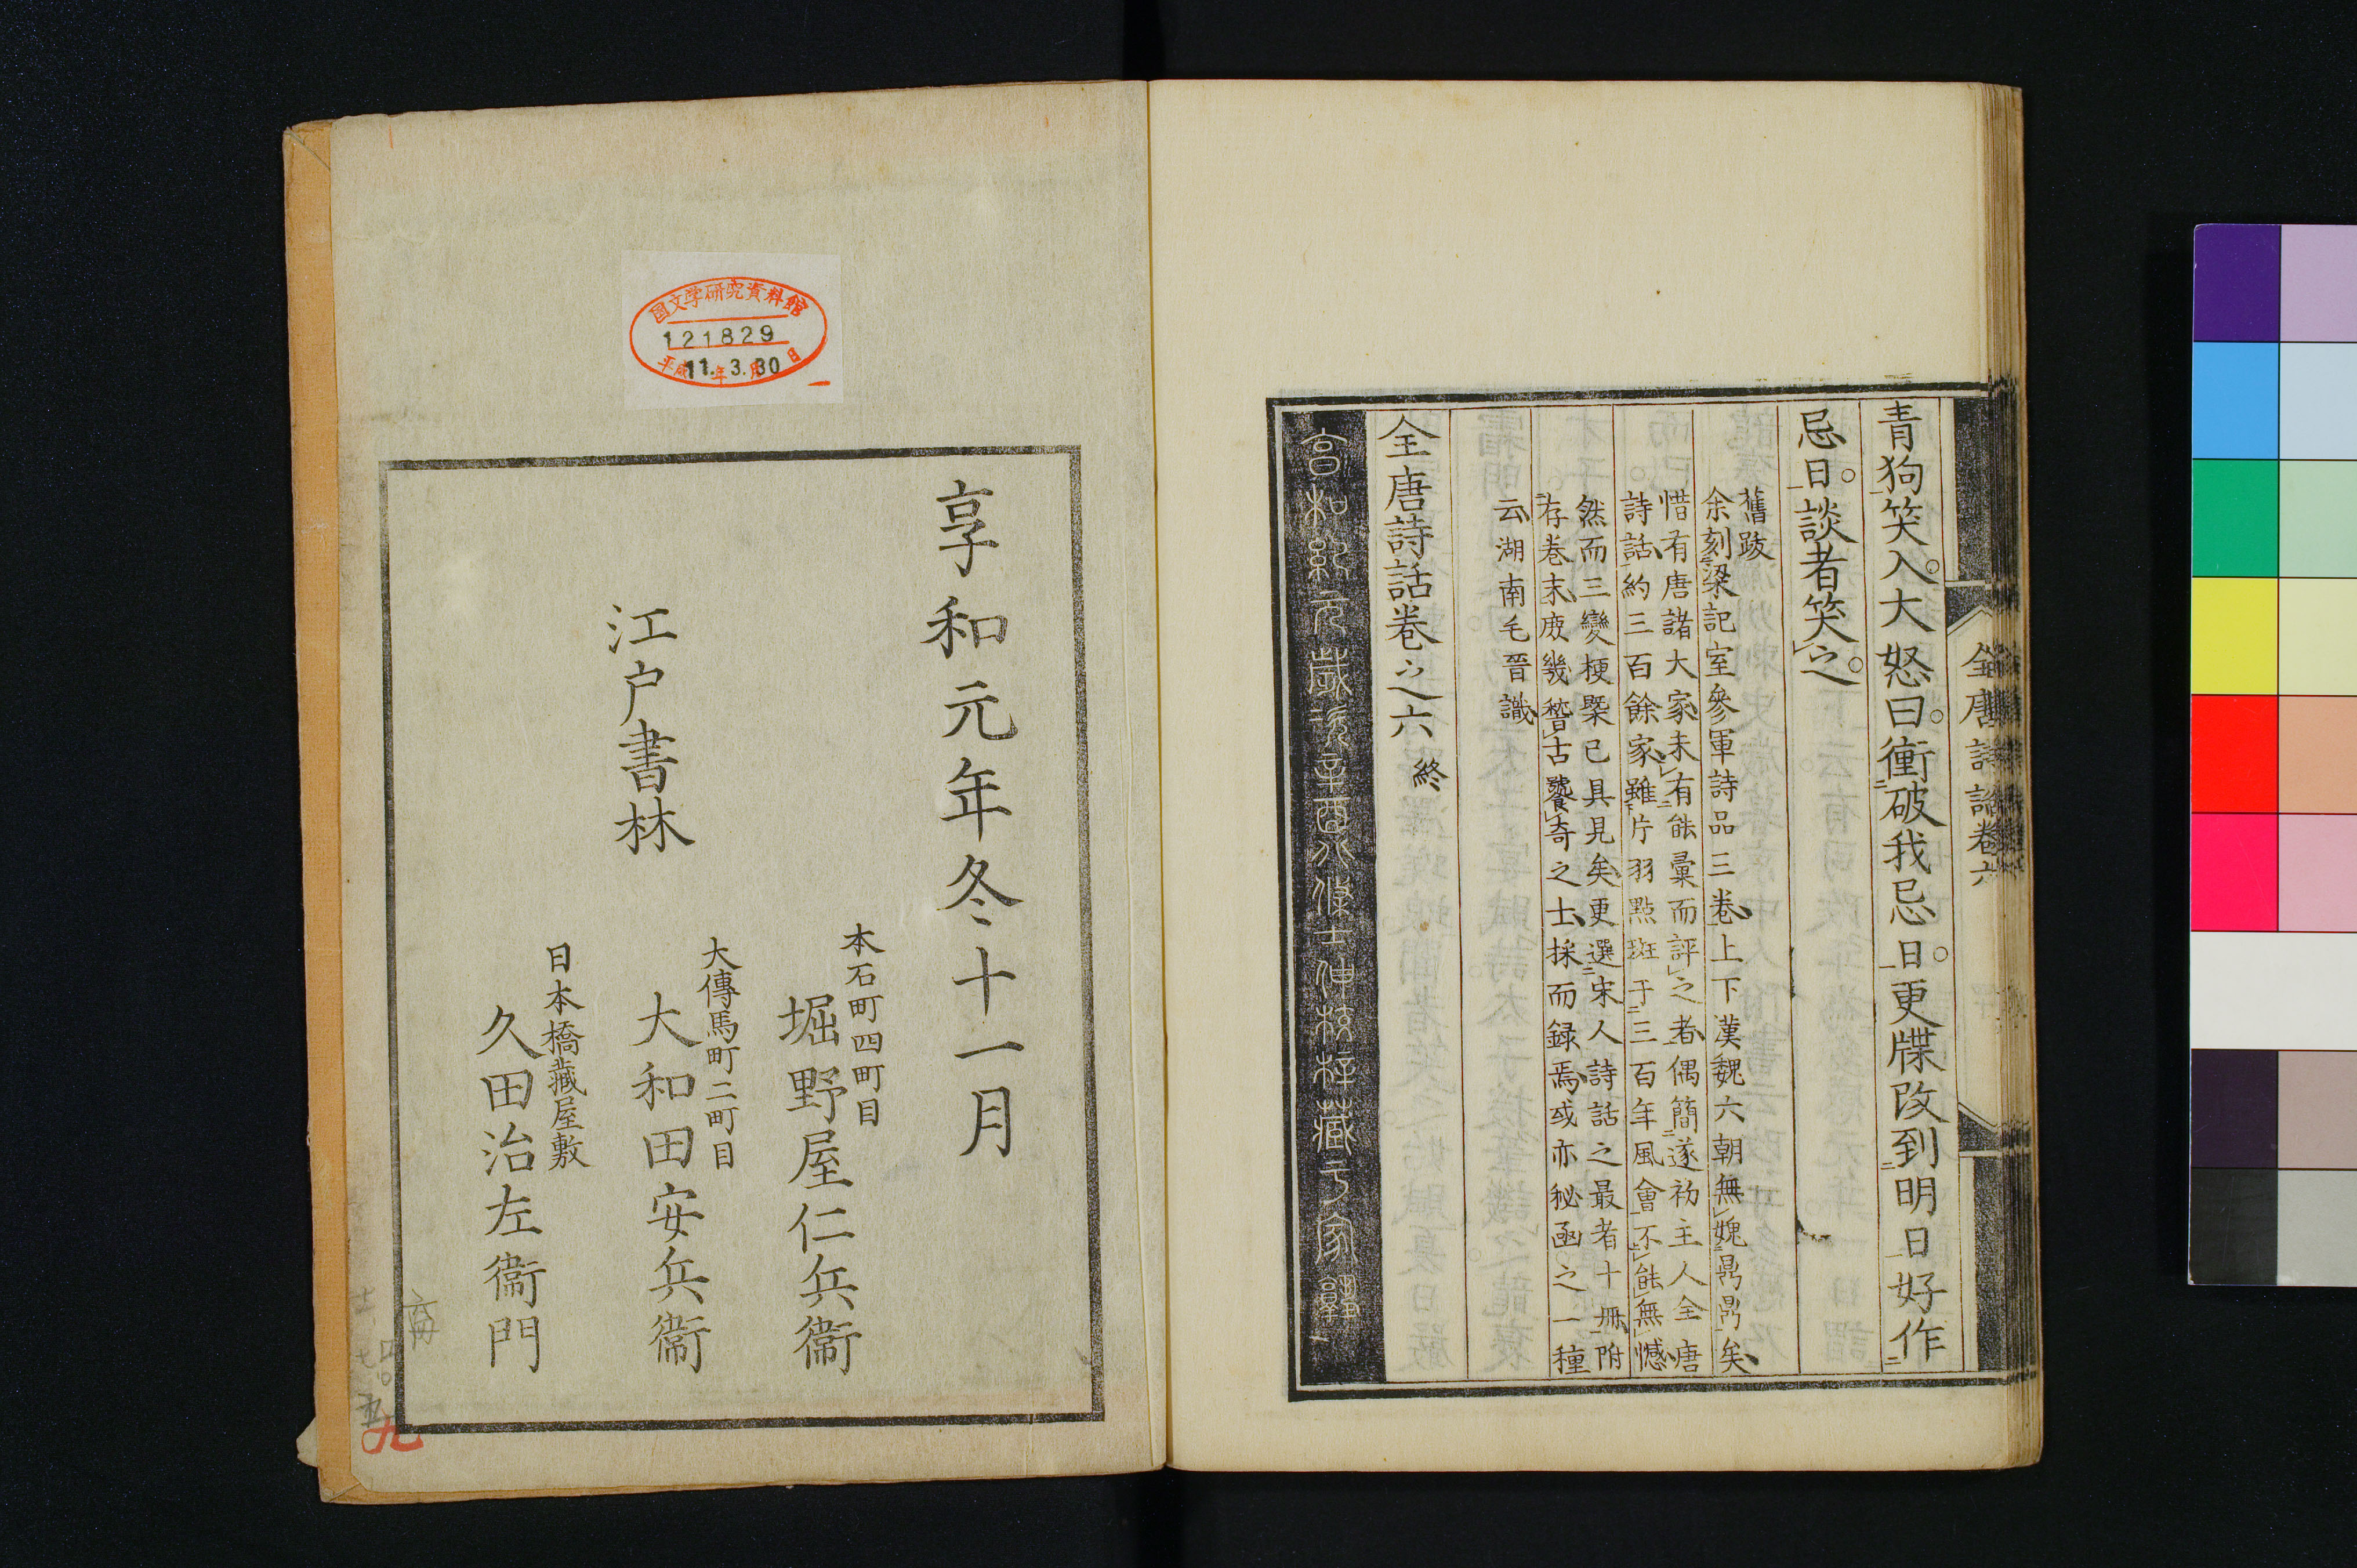 全唐詩話卷六
青狗笑入大怒曰衝破我忌日更牒改到明日好作
忌日談者笑之
舊跋
余刻梁記室參軍詩品三卷上下漢魏六朝無媿鼎鼎矣
惜有唐諸大家未有能彙而評之者偶簡遂初主人全唐
詩話約三百餘家雖片羽點斑于三百年風會不能無憾
然而三變梗槩已具見矣更選宋人詩話之最者十冊附
存卷末庶幾嵆古饕奇之士採而録焉或亦秘函之一種
云湖南毛晉識
全唐詩話卷之六 終
享和元年冬十一月
江戸書林
本石町四町目
堀野屋仁兵衞
大傳馬町二町目
大和田安兵衞
日本橋藏屋敷
久田治左衞門
国文学研究資料館
121829
平成11年3月30日